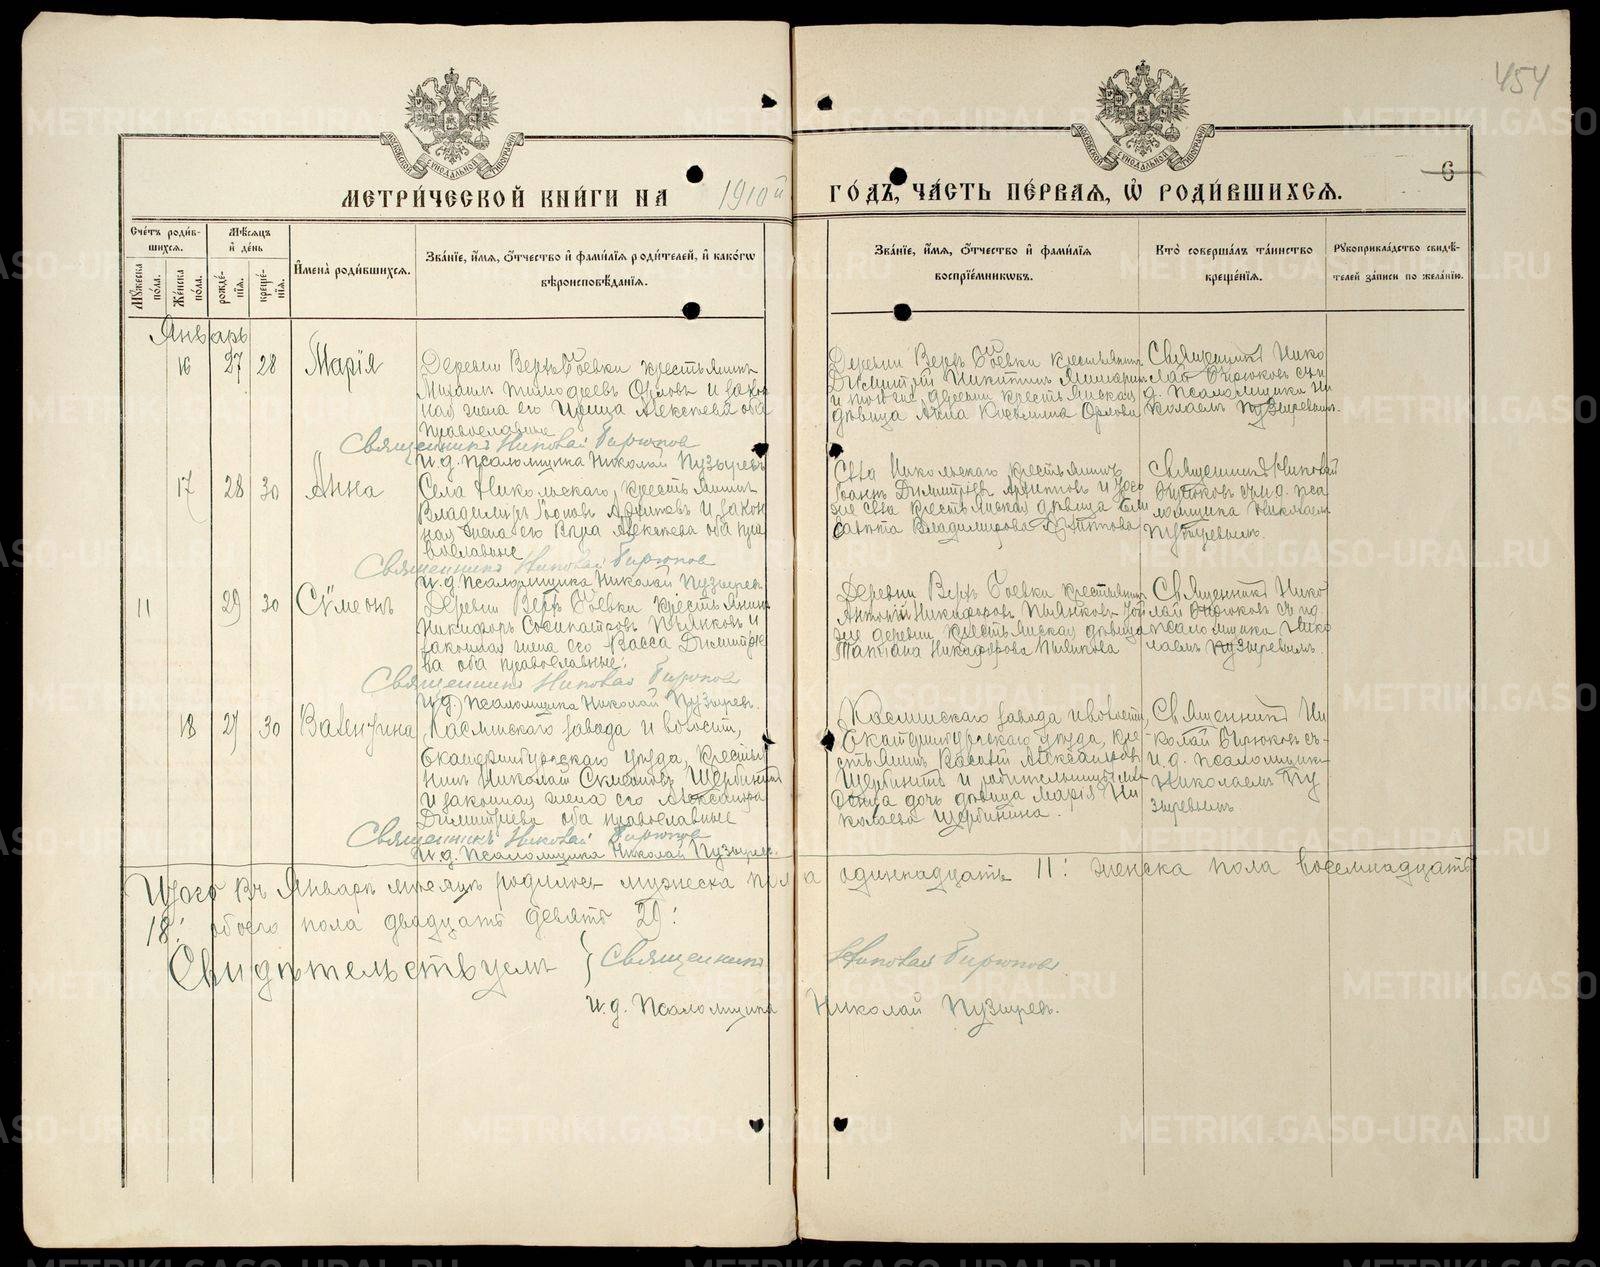 454
МОСКОВСКОЙ СѴНОДАЛЬНОЙ ТИПОГРАФІИ
МОСКОВСКОЙ СѴНОДАЛЬНОЙ ТИПОГРАФІИ
6
МЕТРИ́ЧЕСКОЙ КНИ́ГИ НА 1910й ГО́ДЪ, ЧА́СТЬ ПЕ́РВАЯ, Ѡ РОДИ́ВШИХСЯ.
Сче́тъ роди́в-
шихся.
Мꙋ́жеска по́ла.
Же́нска по́ла.
Мѣ́сяцъ
и҆ де́нь
рожде́нїя.
креще́нїя.
И҆мена̀ роди́вшихся.
Зва́нїе, и҆́мя, ѻ҆́тчество и҆ фами́лїя роди́телей, и҆ како́гѡ
вѣроисповѣ́данїя.
Зва́нїе, и҆́мя, ѻ҆́тчество и҆ фами́лїя
воспрїе́мникѡвъ.
Кто̀ соверша́лъ та́инство
креще́нїя.
Рꙋкоприкла́дство свидѣ́-
телей за́писи по жела́нїю.
Январь
16 27 28 Марія
Деревни Верхъ Боевки крестьянинъ
Михаилъ Тимофеевъ Орловъ и закон
ная жена его Ирина Алексѣева оба
православные
Священникъ Николай Бирюков
И.д. Псаломщика Николай Пузыревъ
Деревни Верхъ Боевки крестьянинъ
Димитрій Никитинъ
и той же деревни крестьянская
дѣвица Анна Орлова
Священникъ Нико
лай Бирюковъ съ и
д. псаломщика Ни
колаемъ Пузыревымъ.
17 28 30 Анна
Села Никольскаго, крестьянинъ
Владимиръ Іоановъ Архиповъ и закон
ная жена его Вѣра Алексѣева оба пра
вославные
Священникъ Николай Бирюков
И.д. Псаломщика Николай Пузыревъ
Села Никольскаго крестьянинъ
Іоаннъ Димитріевъ Архиповъ и того
же села крестьянская дѣвица Ели
савета Владимирова Архипова
Священникъ Николай
Бирюковъ съ и.д. пса
ломщика Николаемъ
Пузыревымъ.
11 29 30 Сѷмеонъ
Деревни Верхъ Боевки крестьянинъ
Никифоръ Сосипатровъ Пьянковъ и
законная жена его Васса Димитріе
ва оба православные.
Священникъ Николай Бирюков
И.д. Псаломщика Николай Пузыревъ.
Деревни Верхъ Боевки крестьянинъ
Антоній Никифоровъ Пьянковъ той
же деревни крестьянская дѣвица
Татіана Никифорова Пьянкова
Священникъ Нико
лай Бирюковъ съ и.д.
псаломщика Нико
лаемъ Пузыревымъ.
18 27 30 Валентина
Каслинскаго завода и волости,
Екатеринбургскаго уѣзда, крестья
нинъ Николай Семеновъ Щербининъ
и законная жена его Александра
Димитріева оба православные
Священникъ Николай Бирюков
И.д. Псаломщика Николай Пузыревъ.
Каслинскаго завода и волости,
Екатеринбургскаго уѣзда, кре
стьянинъ Василій Александровъ
Щербининъ и
дочь дѣвица Марія Ни
колаева Щербинина.
Священникъ Ни
колай Бирюковъ съ
и.д. псаломщика
Николаемъ Пу
зыревымъ
Итого въ Январѣ мѣсяцѣ родилось мужеска пола одиннадцать 11: женска пола восемнадцать
18: обоего пола двадцать девять 29:
Свидѣтельствуемъ } Священникъ Николай Бирюков
и.д. Псаломщика Николай Пузыревъ.
METRIKI.GASO-URAL.RU